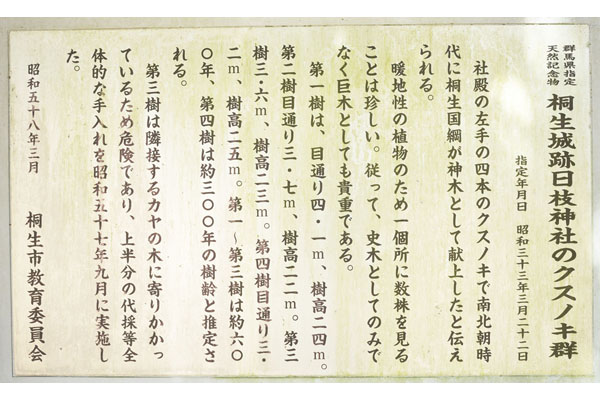 群馬県指定
天然記念物
桐生城跡日枝神社のクスノキ群
指定年月日 昭和三十三年三月二十二日
社殿の左手の四本のクスノキで南北朝時
代に桐生国綱が神木として献上したと伝え
られる。
暖地性の植物のため一個所に数株を見る
ことは珍しい。従って、史木としてのみで
なく巨木としても貴重である。
第一樹は、目通り四・一m、樹高二四m。
第二樹目通り三・七m、樹高二二m。第三
樹三・六m、樹高二三m。第四樹目通り三・
二m、樹高二五m。第一～第三樹は約六〇
〇年、第四樹は約三〇〇年の樹齢と推定さ
れる。
第三樹は隣接するカヤの木に寄りかかっ
ているため危険であり、上半分の代採等全
体的な手入れを昭和五十七年九月に実施し
た。
昭和五十八年三月
桐生市教育委員会